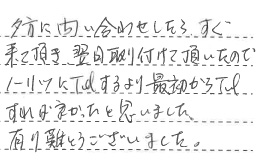 夕方に問い合わせしたら、すぐ
来て頂き翌日取り付けて頂いたので
ノーリツにTelするより最初からTel
すれば良かったと思いました。
有り難とうございました。